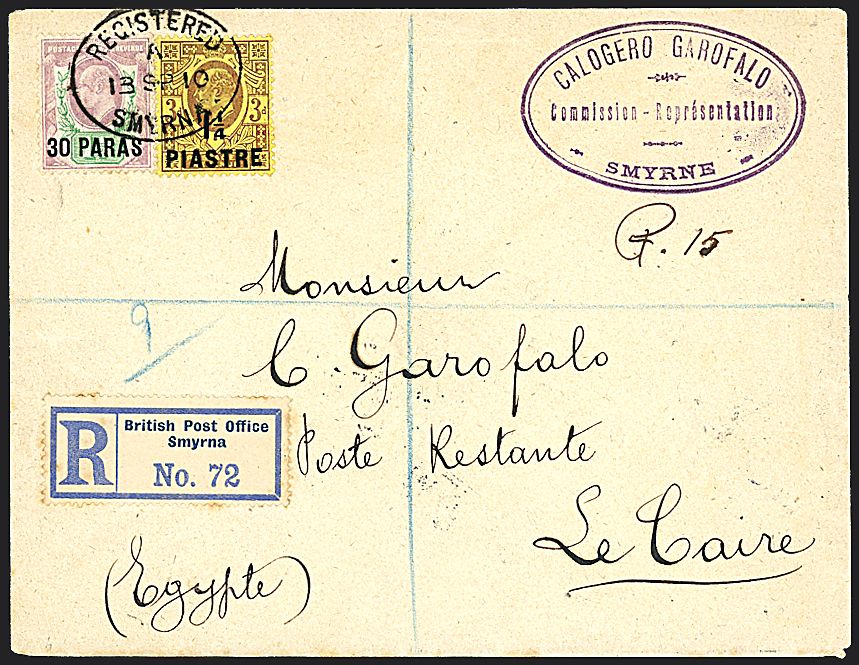 POSTAGE REVENUE
30 PARAS
3d 3d
1¼
PIASTRE
REGISTERED
A
13 SP 10
SMYRNA
CALOGERO GAROFALO
Commission - Représentation
SMYRNE
15
Monsieur
C. Garofalo
9
Poste Restante
Le Caire
(Egypte)
R
British Post Office
Smyrna
No. 72